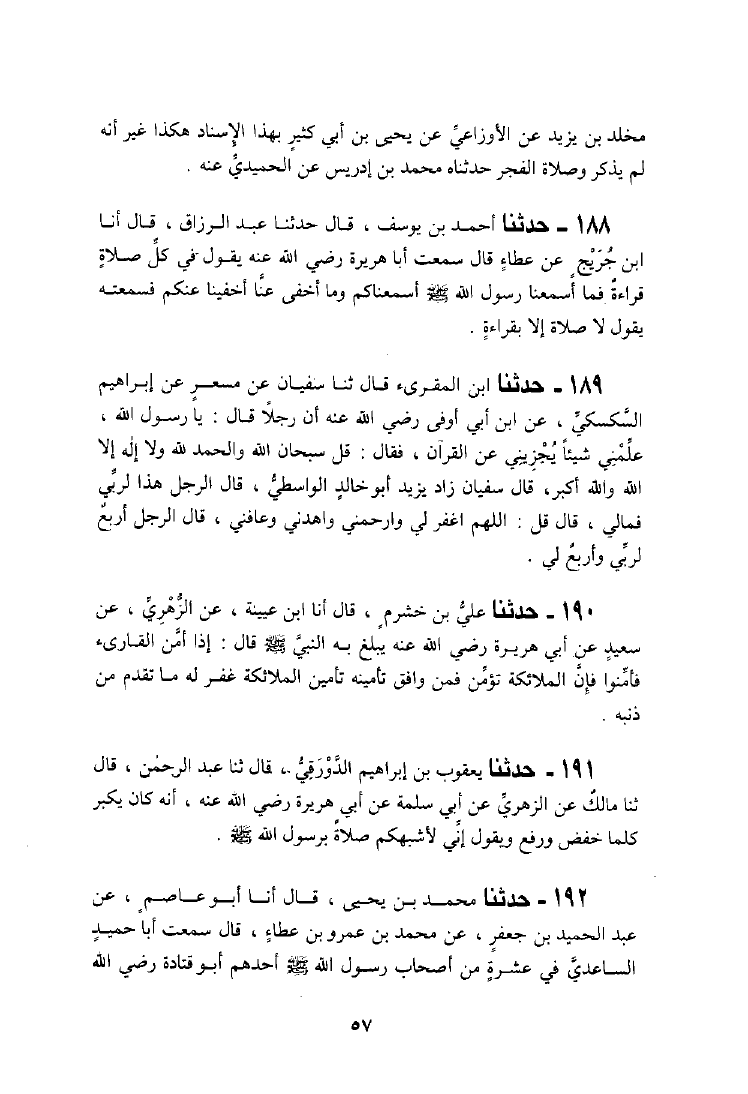 مخلد بن يزيد عن الأوزاعيِّ عن يحيى بن أبي كثيرٍ بهذا الإِسناد هكذا غير أنه
لم يذكر وصلاة الفجر حدثناه محمد بن إدريس عن الحميديُّ عنه .
١٨٨ - حدثنا أحمد بن يوسف ، قال حدثنا عبد الرزاق ، قال أنا
ابن جُرَيْج ٍ عن عطاءٍ قال سمعت أبا هريرة رضي الله عنه يقول في كلِّ صلاةٍ
قراءةٌ فما أسمعنا رسول الله ﷺ أسمعناكم وما أخفى عنَّا أخفينا عنكم فسمعته
يقول لا صلاة إلا بقراءةٍ .
١٨٩ - حدثنا ابن المقرىء قال ثنا سفيان عن مسعرٍ عن إبراهيم
السَّكسكيِّ ، عن ابن أبي أوفى رضي الله عنه أن رجلًا قال : يا رسول الله ،
علِّمْني شيئاً يُجْزيني عن القرآن ، فقال : قل سبحان الله والحمد لله ولا إله إلا
الله والله أكبر، قال سفيان زاد يزيد أبو خالدٍ الواسطيُّ ، قال الرجل هذا لربِّي
فمالي ، قال قل : اللهم اغفر لي وارحمني واهدني وعافني ، قال الرجل أربعٌ
لربِّي وأربعٌ لي .
١٩٠ - حدثنا عليُّ بن خشرم ٍ ، قال أنا ابن عيينة ، عن الزُّهْريِّ ، عن
سعيدٍ عن أبي هريرة رضي الله عنه يبلغ به النبيَّ ﷺ قال : إذا أمَّن القارىء
فأمِّنوا فإنَّ الملائكة تؤمِّن فمن وافق تأمينه تأمين الملائكة غفر له ما تقدم من
ذنبه .
١٩١ - حدثنا يعقوب بن إبراهيم الدَّوْرَقِيُّ ، قال ثنا عبد الرحمٰن ، قال
ثنا مالكٌ عن الزهريِّ عن أبي سلمة عن أبي هريرة رضي الله عنه ، أنه كان يكبر
كلما خفض ورفع ويقول إنِّي لأشبهكم صلاةً برسول الله ﷺ .
١٩٢ - حدثنا محمد بن يحيى ، قال أنا أبو عاصم ٍ ، عن
عبد الحميد بن جعفرٍ ، عن محمد بن عمرو بن عطاءٍ ، قال سمعت أبا حميدٍ
الساعديَّ في عشرةٍ من أصحاب رسول الله ﷺ أحدهم أبو قتادة رضي الله
٥٧